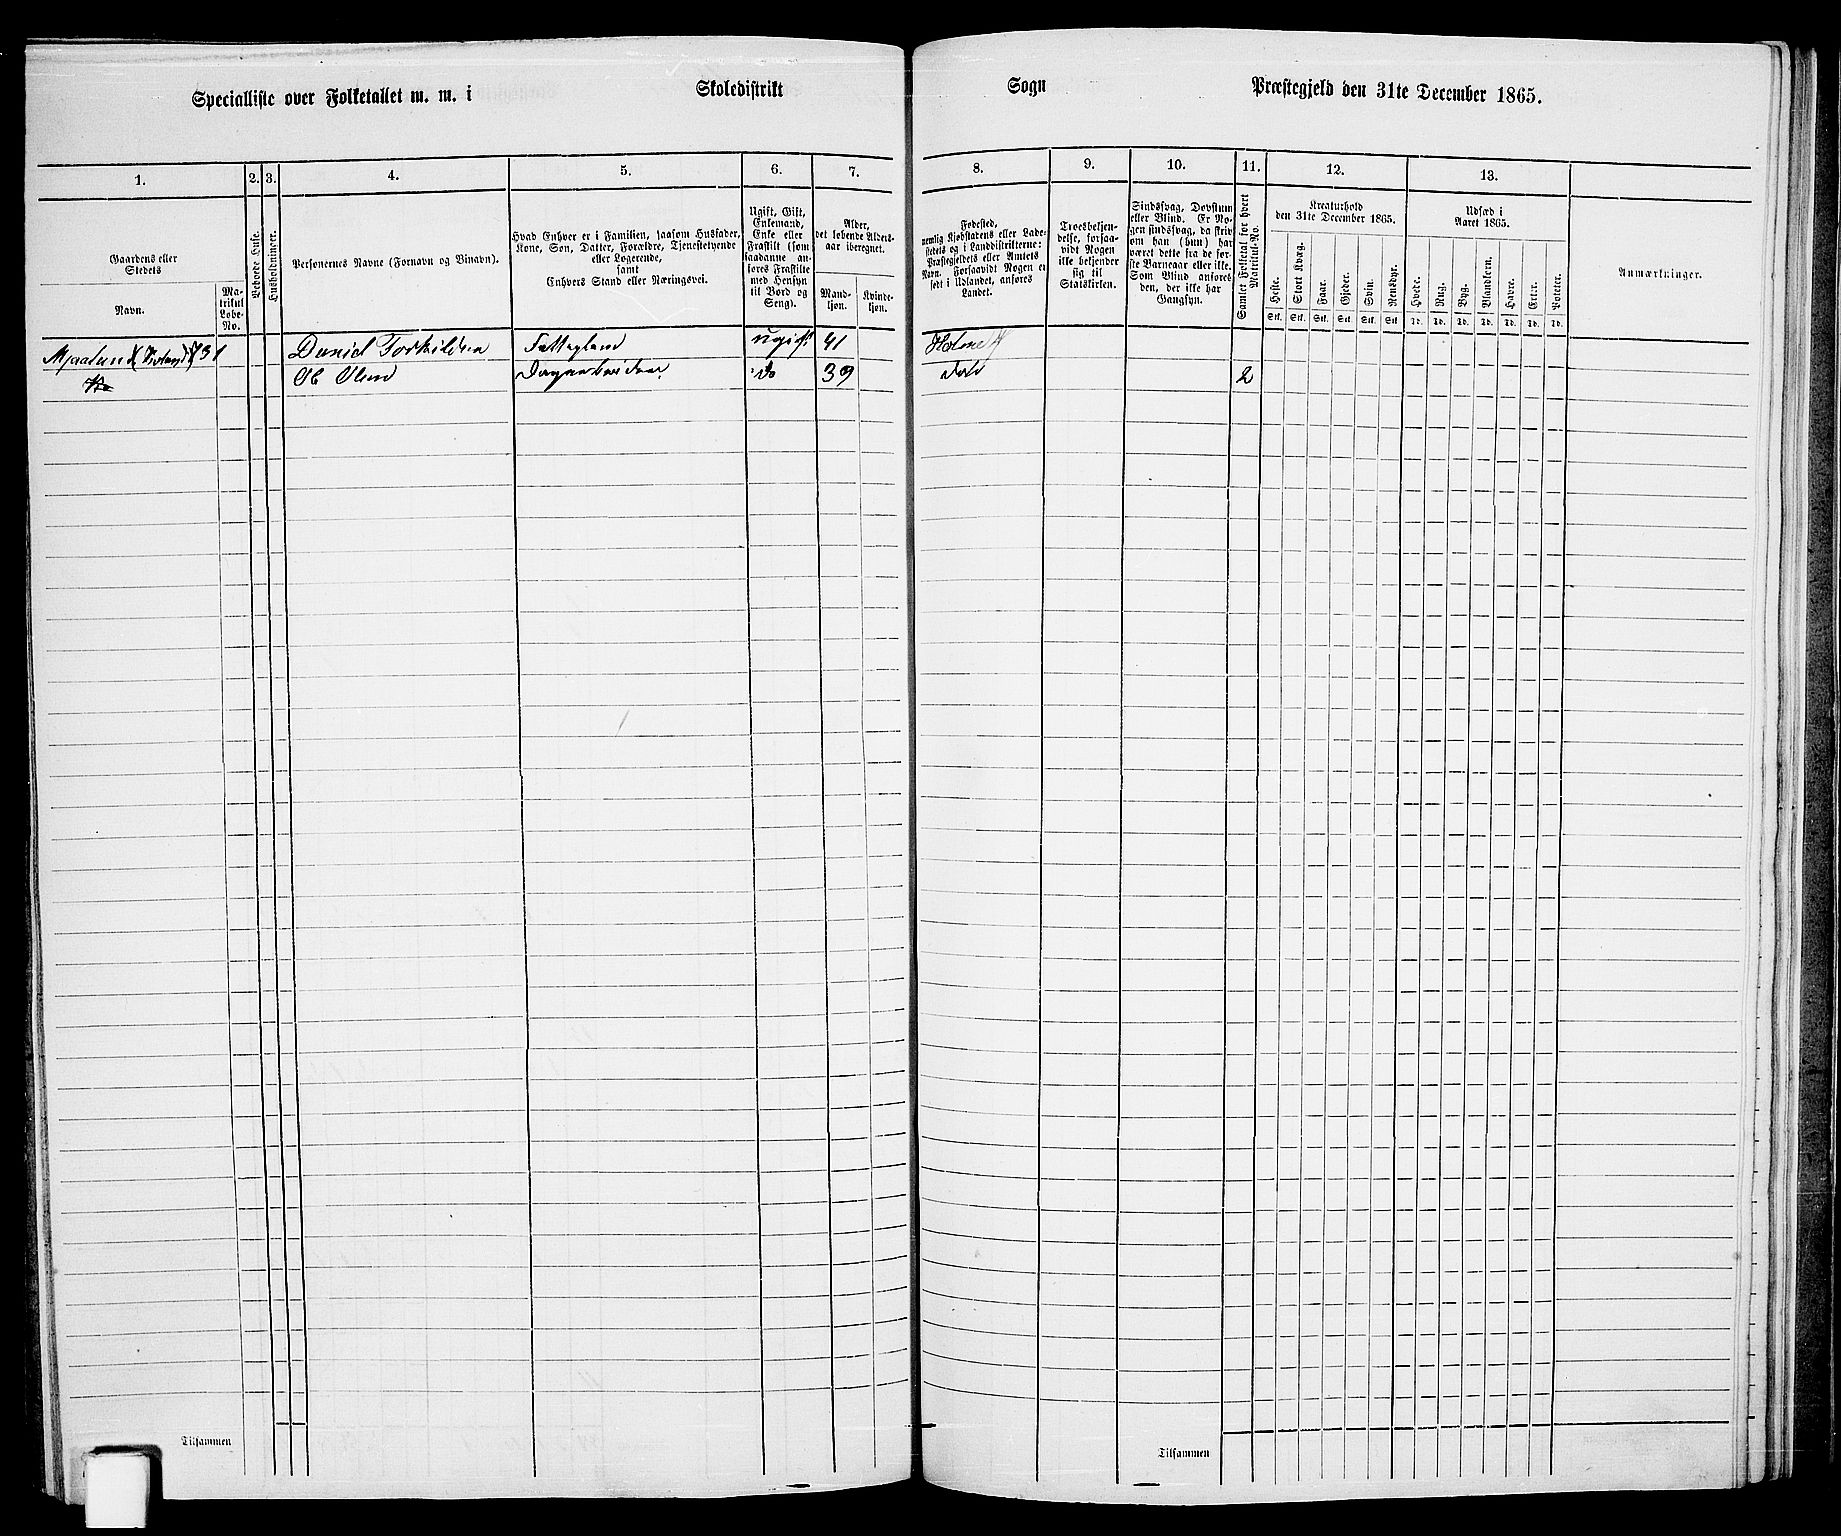 Specialliste over Folketallet m. m. i Skoledistrikt Sogn Præstegjeld den 31te December 1865.
1. 2. 3. 4. 5. 6. 7. 8. 9. 10. 11. 12. 13.
Gaardens eller
Stedets
Navn.
Ma-
trikul
Løbe-
No.
Beboede Huse.
Husholdninger.
Personernes Navne (Fornavn og Binavn).
Hvad Enhver er i Familien, saasom Husfader,
Kone, Søn, Datter, Forældre, Tjenestetyende
eller Logerende,
samt
Enhvers Stand eller Næringsvei.
Ugift, Gift,
Enkemand,
Enke eller
Fraskilt (som
saadanne an-
føres Fraskilte
med Hensyn
til Bord og
Seng).
Alder,
det løbende Alders-
aar iberegnet.
Mand-
kjøn.
Kvinde-
kjøn.
Fødested,
nemlig Kjøbstadens eller Lade-
stedets og i Landdistrikterne:
Præstegjeldets eller Amtets
Navn. Forsaavidt Nogen er
født i Udlandet, anføres
Landet.
Troesbekjen-
delse, forsaa-
vidt Nogen
ikke bekjender
sig til
Statskirken.
Sindssvag, Døvstum
eller Blind. Er No-
gen sindssvag, da skriv
om han (hun) har
været dette fra de før-
ste Barneaar eller ikke.
Som Blind anføres
den, der ikke har
Gangsyn.
Samlet Folketal for hvert
Matrikul-No.
Kreaturhold
den 31te December 1865.
Heste.
Stort Kvæg.
Faar.
Gjeder.
Svin.
Rensdyr.
Stk. Stk. Stk. Stk. Stk. Stk.
Udsæd i
Aaret 1865.
Hvede.
Rug.
Byg.
Blandkorn.
Havre.
Erter.
Poteter.
Td. Td. Td. Td. Td. Td. Td.
Anmærkninger.
Daniel Torkildsen Fattiglem ugift 41
Ole Olsen Dagarbeider do 39 2
Tilsammen
Tilsammen